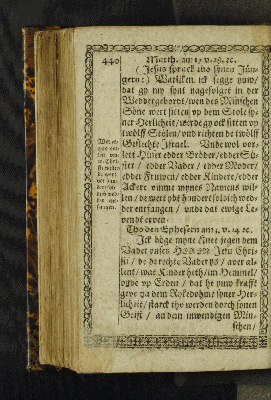 440
Matth. am 19 v. 28. ꝛc.
(Jesus sprack tho synen Jün-
gern:) Warliken ick segge yuw/
dat gy my synt nagefolget in der
Weddergebordt/ wen des Minschen
Söne wert sitten vp dem Stole sy-
ner Herlicheit/ werde gy ock sitten vp
twölff Stölen/ vnd richten de twölff
Geslechte Israel. Vnde wol vor-
leth Hüser edder Bröder/ edder Sü-
ster / edder Vader / edder Moder/
edder Fruwen/ edder Kindere/ edder
Ackere vmme mynes Namens wil-
len/ de wert ydt hundertfoldich wed-
der entfangen / vnde dat ewige Le-
vendt erven.
Tho den Ephesern am 3. v. 14. ꝛc.
Ick böge myne Knee jegen dem
Vader vnses HEREN Jesu Chris-
ti / de de rechte Vader ys / aver al-
lent/ wat Kinder heth/ im Hemmel/
vnde vp Erden / dat he yuw krafft
geve na dem Rykedohme syner Her-
licheit/ starck tho werden dorch synen
Geist / an dem inwendigen Min-
schen/